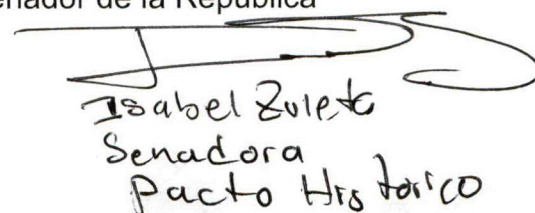 enador de la República
Isabel Zuleta
Senadora
Pacto Histórico